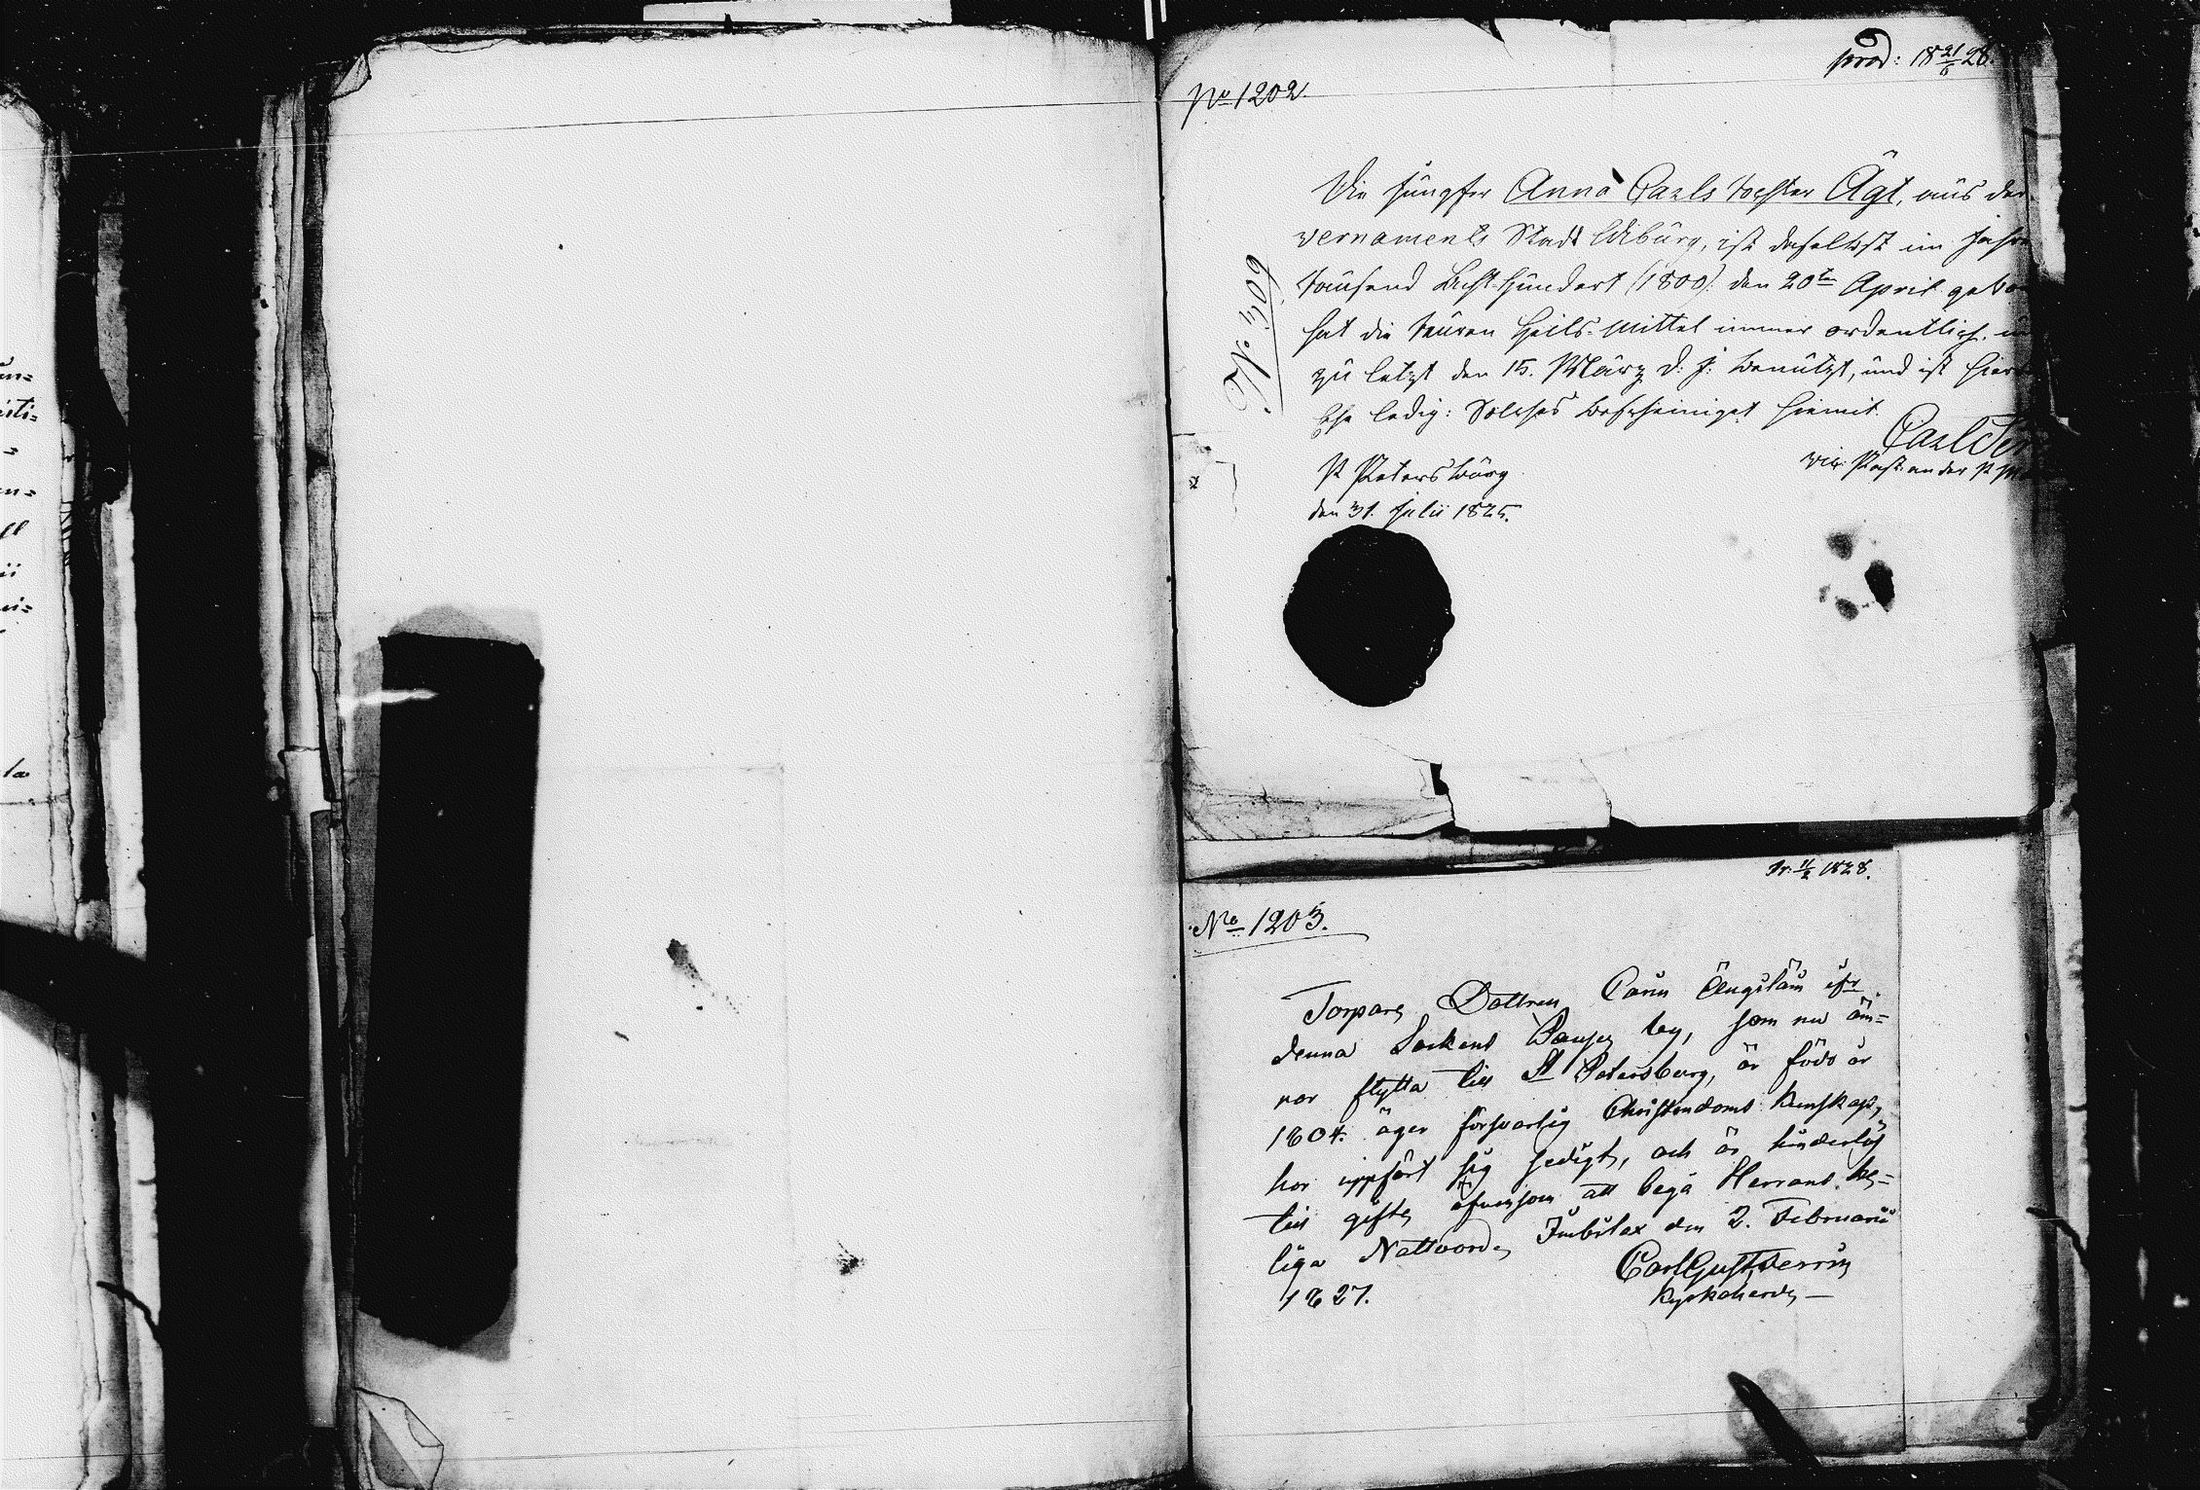 prod: 18 21/6 28.
No 1202.
Die Jungfer Anna Carls tochter Ägt, aus der
vernements Stadt Wiburg, ist daselbst im Jahre
tausend Acht hundert (1800) den 20ten April gebo
hat die teuren Heils-Mittel immer ordentlich, u
zu letzt den 15. März d. J. benützt, und ist hier
Ehe ledig: Solches bescheiniget hiemit.
Carl
vic. Past. an der St
St Petersburg
den 31. Julii 1825.
No. 309
pr. 11/2 1828.
No 1203.
Torpare Dottren Carin Ängsläin ifr.
denna Sockens by, som nu äm-
nar flytta till St Petersburg, är född år
1804. äger försvarlig Christendoms kunskap,
har uppfört sig sedigt, och är hinderlös
till gifte, äfvensom att begå Herrans he-
liga Nattvard, Jmbilax den 2. Februarii
1827.
Carl Gust.
Kyrkoherde